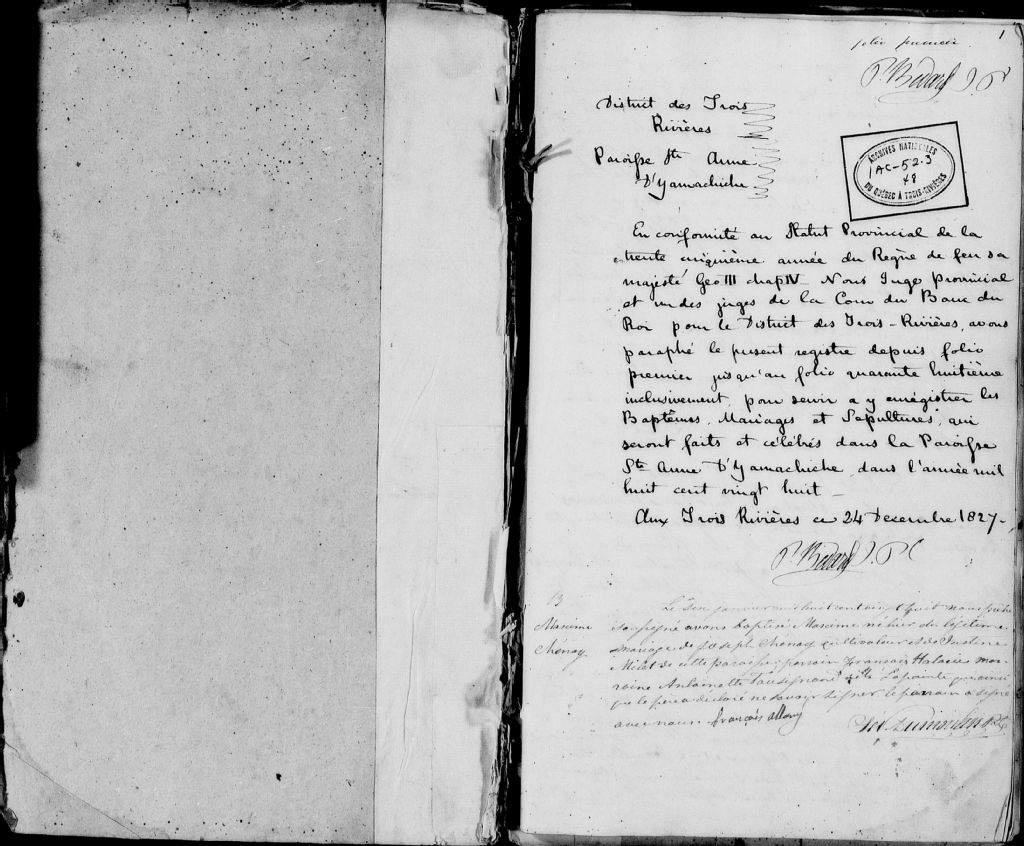 1
folio premier
P. Bedard J. P.
District des Trois
Rivières
Paroisse Ste Anne
D'Yamachiche
ARCHIVES NATIONALES
1AC-52.3
48
DU QUÉBEC À TROIS-RIVIÈRES
En conformité au Statut Provincial de la
trente cinquième année du Règne de feu sa
majesté Geo III chap IV - Nous Juge provincial
et un des juges de la Cour du Banc du
Roi pour le District des Trois-Rivières, avons
paraphé le présent registre depuis folio
premier jusqu'au folio quarante huitième
inclusivement, pour servir a y enrégistrer les
Baptêmes, Mariages et Sépultures, qui
seront faits et célébrés dans la Paroisse
Ste Anne D'Yamachiche, dans l'année mil
huit cent vingt huit -
Aux Trois Rivières ce 24 Decembre 1827.
P. Bedard J. P.
B
Maxime
Chénay
Le janvier mil huit cent vingt huit nous prêtre
soussigné avons baptisé Maxime né hier du légitime
mariage de Joseph Chénay cultivateur et de Justine
Milot de cette paroisse; parrain François mar-
raine Antoinette Lapointe
que le père a déclaré ne savoir signer le parrain a signé
avec nous. François
Ptre